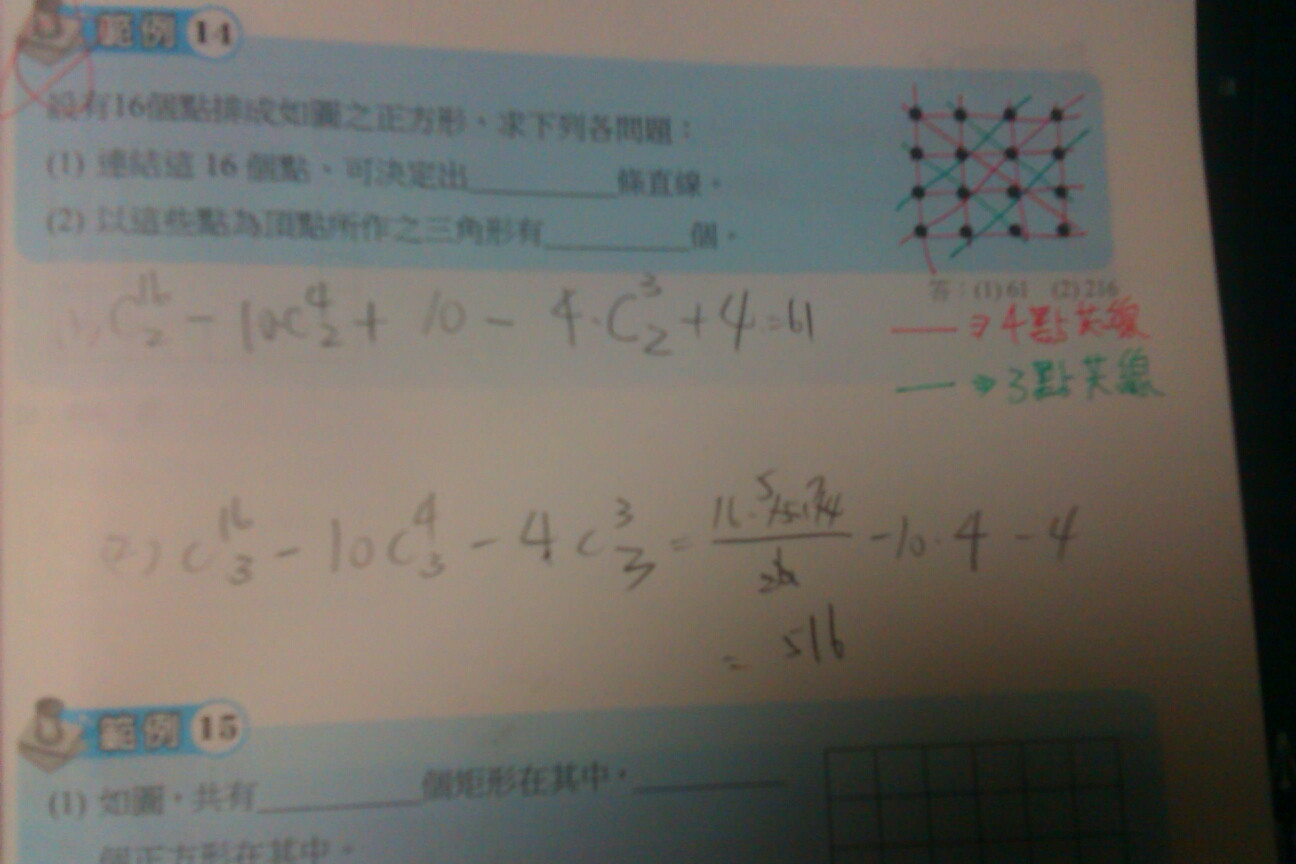 範例 14
設有16個點排成如圖之正方形,求下列各問題:
(1) 連結這 16 個點、可決定出________條直線。
(2) 以這些點為頂點所作之三角形有________個。
答:(1) 61 (2) 216
(1) C^16_2 - 10C^4_2 + 10 - 4·C^3_2 + 4 = 61
—— ⇒ 4點共線
—— ⇒ 3點共線
(2) C^16_3 - 10C^4_3 - 4C^3_3 = 16·15·14 / 6 - 10·4 - 4
= 516
範例 15
(1) 如圖,共有________個矩形在其中,________
個正方形在其中。